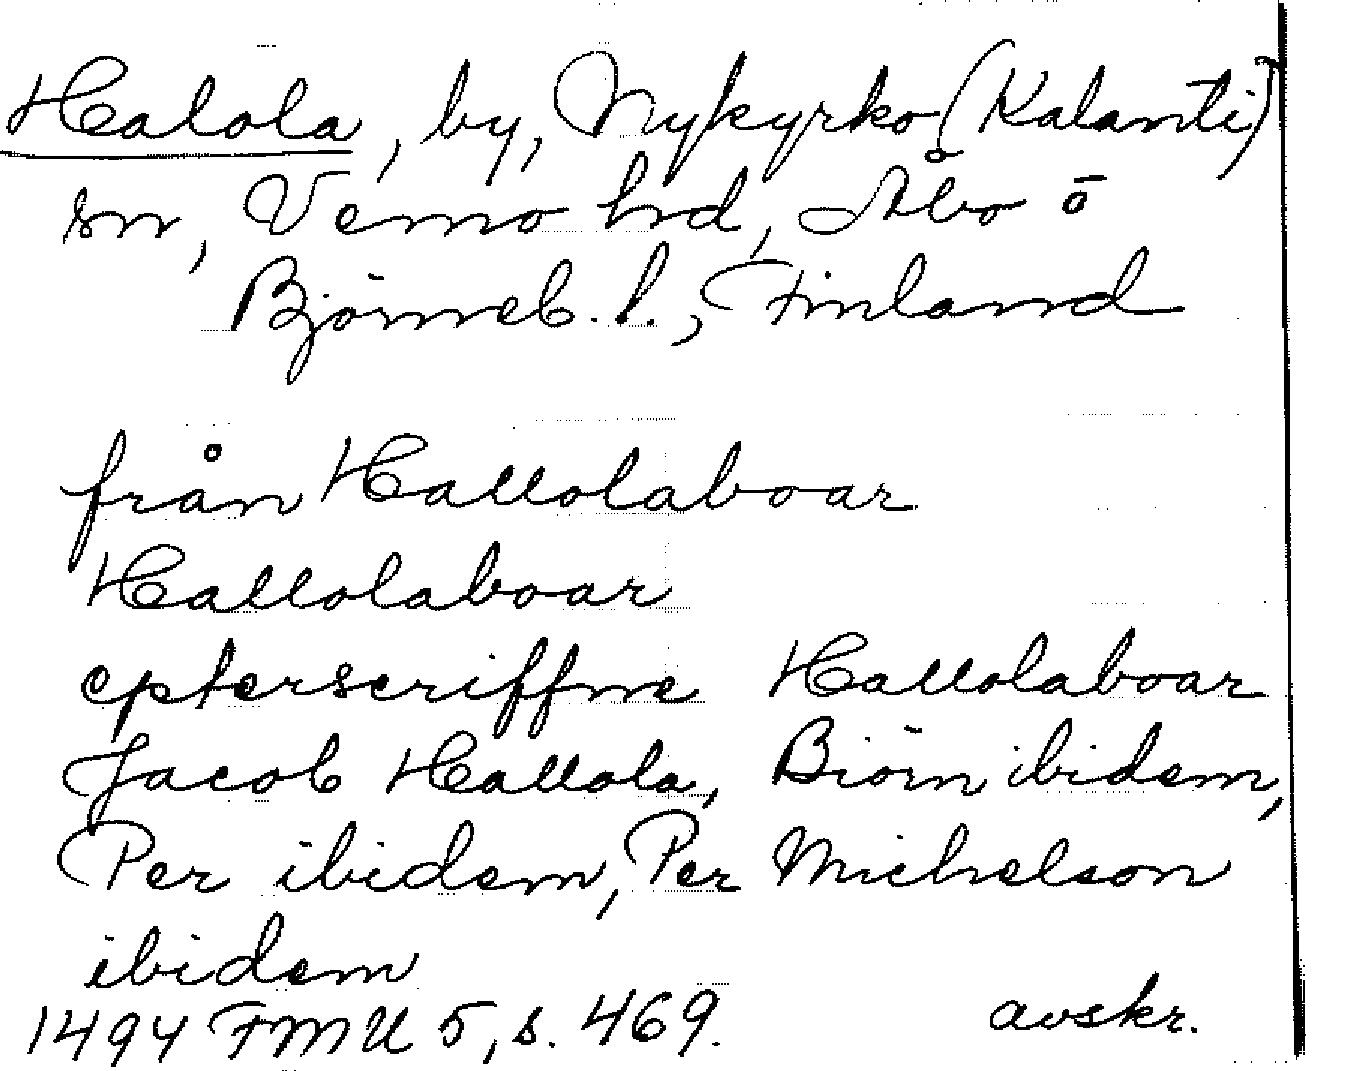 Halola, by, Nykyrko (Kalanti)
sn, Vemo hrd, Åbo ō
Björneb. l., Finland
från Hallolaboar
Hallolaboar
epterscriffne Hallolaboar
Jacob Hallola, Biörn ibidem,
Per ibidem, Per Michelson
ibidem
1494 FMU 5, s. 469. avskr.